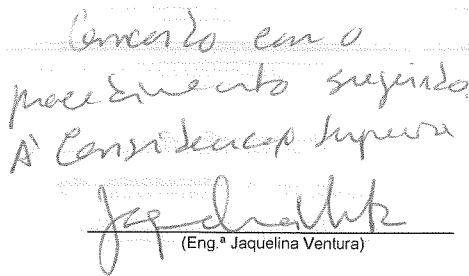 Concordo com o
procedimento sugerido.
À Consideração Superior
(Eng.ª Jaquelina Ventura)